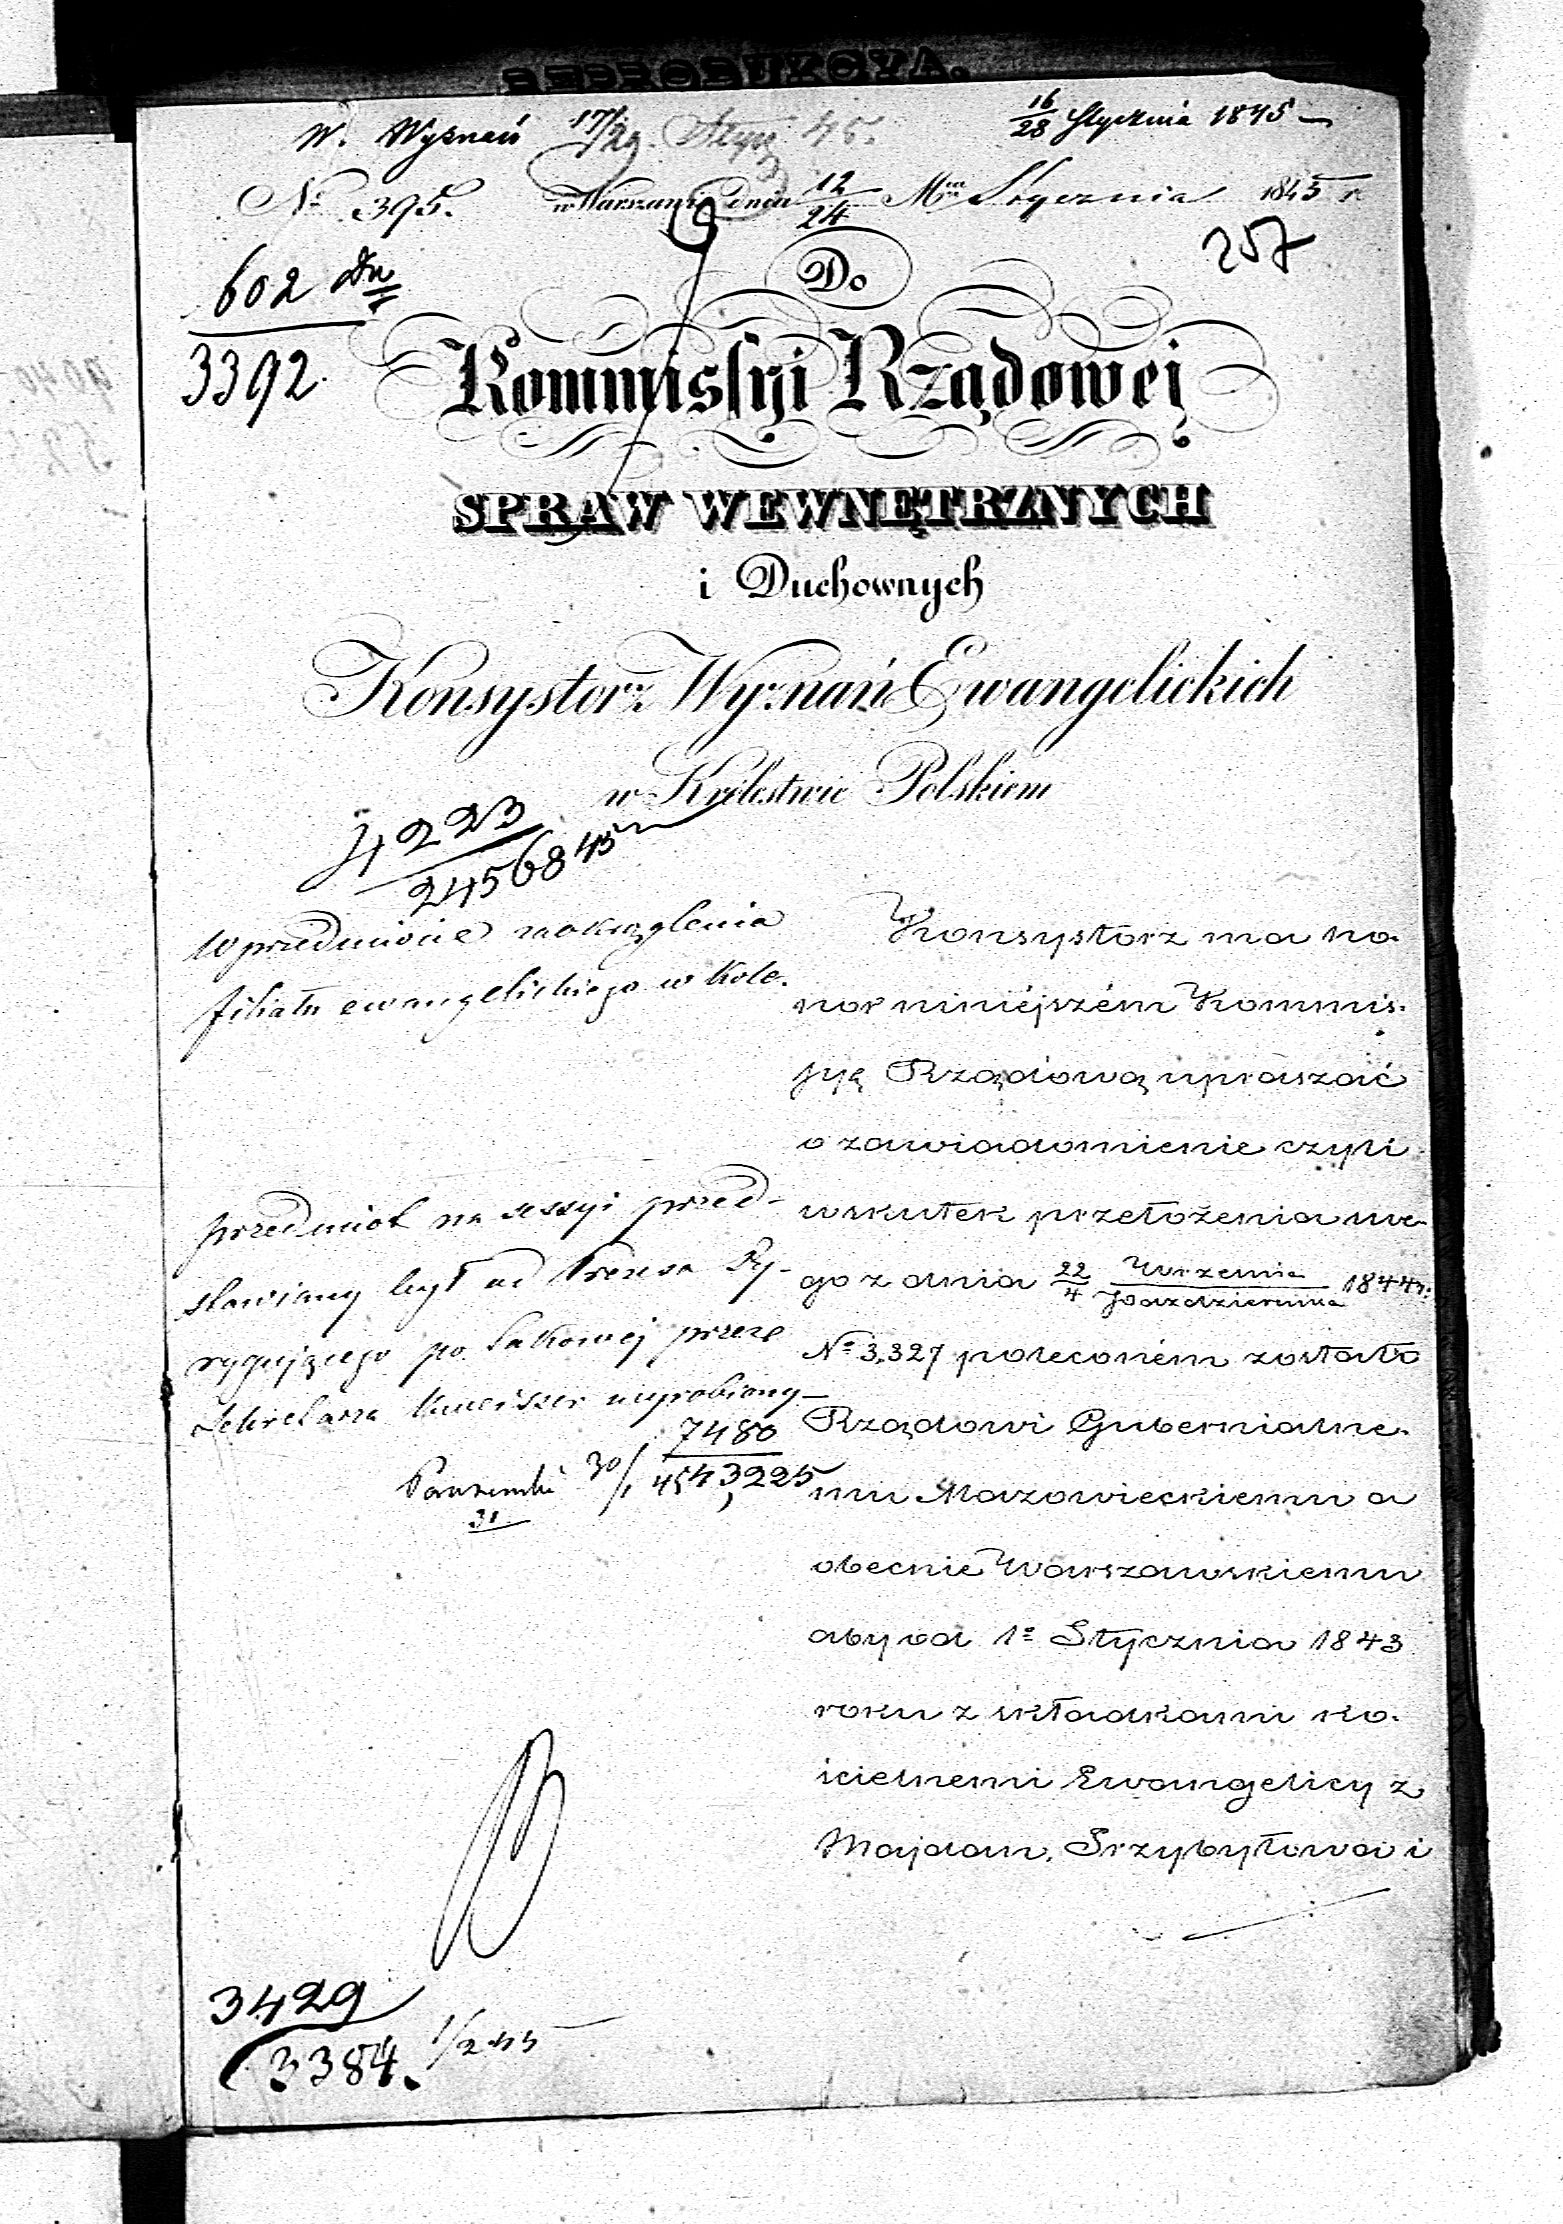 W. Wyznań 17/29. Stycz 45.
16/28 Stycznia 1845
№ 395. w Warszawie dnia 12/24 Mca Stycznia 1845 r
257
602
3392.
Do
Kommissyi Rządowej
SPRAW WEWNĘTRZNYCH
i Duchownych
Konsystorz Wyznań Ewangelickich
w Królestwie Polskiem
4223
24568 45
W przedmiocie zaokrąglenia
filiału ewangelickiego w Kole.
Konsystorz ma ho-
nor niniejszém Kommis-
syą Rządową upraszać
o zawiadomienie czyli
wskutek przełożenia me-
go z dnia 22/4 Września/Października 1844 r.
№ 3,327 poleconém zostało
Rządowi Gubernialne-
mu Mazowieckiemu a
obecnie Warszawskiemu
aby od 1º Stycznia 1843
roku z składkami ko-
ścielnemi Ewangelicy z
Majdan, Przybyłowa i
przedmiot na sessyi przed-
stawiany był od Prezesa Dy-
rygującego po takowej przez
Sekretarza wyrobiony
30/1 7480
45 43,225
31
3429
3384. 1/2 45